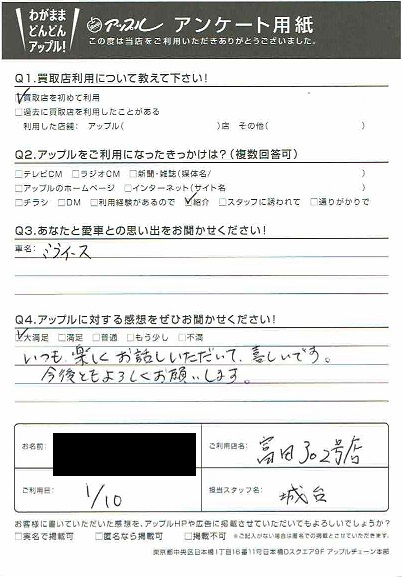 わがまま
どんどん
アップル!
アップル アンケート用紙
この度は当店をご利用いただきありがとうございました。
Q1.買取店利用について教えて下さい!
☑買取店を初めて利用
□過去に買取店を利用したことがある
利用した店舗: アップル( )店 その他( )
Q2.アップルをご利用になったきっかけは?(複数回答可)
□テレビCM □ラジオCM □新聞・雑誌(媒体名/ )
□アップルのホームページ □インターネット(サイト名 )
□チラシ □DM □利用経験があるので ☑紹介 □スタッフに誘われて □通りがかりで
Q3.あなたと愛車との思い出をお聞かせください!
車名: ミライース
Q4.アップルに対する感想をぜひお聞かせください!
☑大満足 □満足 □普通 □もう少し □不満
いつも、楽しくお話しいただいて、喜しいです。
今後ともよろしくお願いします。
お名前:
ご利用店名: 富田302号店
ご利用日: 1/10
担当スタッフ名: 城台
お客様に書いていただいた感想を、アップルHPや広告に掲載させていただいてもよろしいでしょうか?
□実名で掲載可 □匿名なら掲載可 □掲載不可 ※ご記入がない場合は匿名での掲載とさせていただきます。
東京都中央区日本橋1丁目16番11号日本橋Dスクエア9F アップルチェーン本部